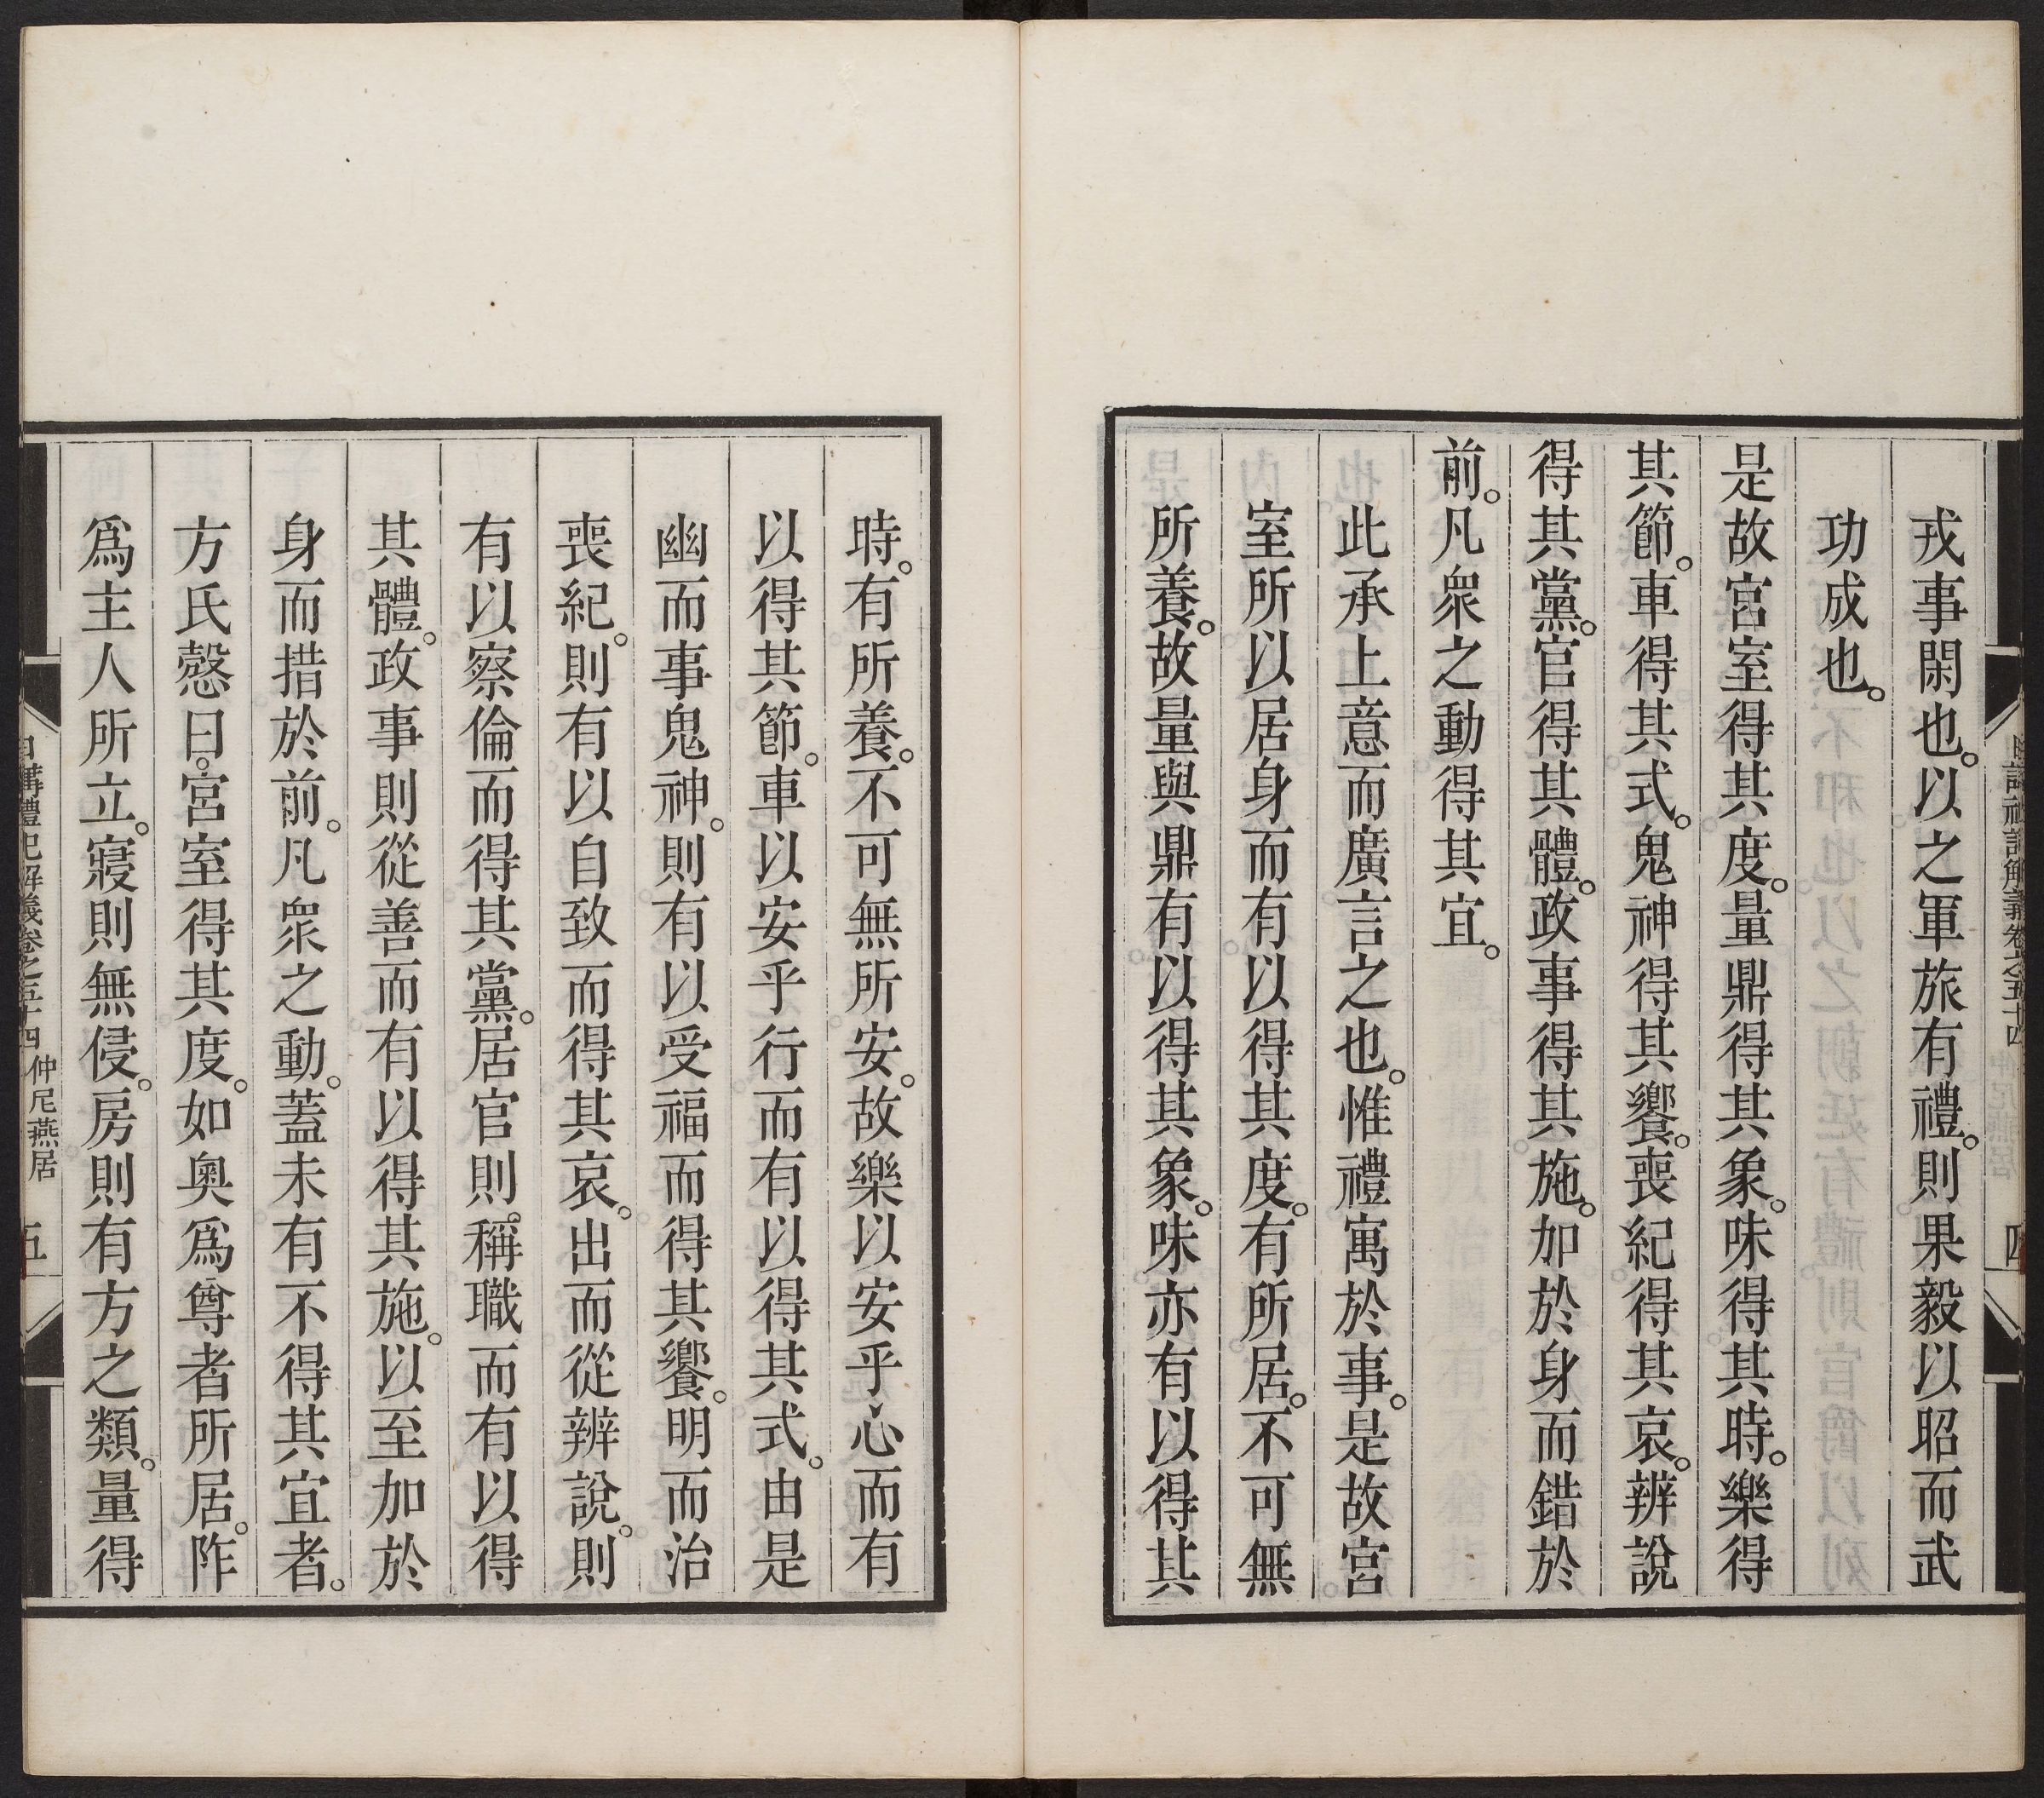 戎事閑也。以之軍旅有禮。則果毅以昭而武
功成也。
是故宮室得其度。量鼎得其象。味得其時。樂得
其節。車得其式。鬼神得其饗。喪紀得其哀。辨說
得其黨。官得其體。政事得其施。加於身而錯於
前。凡衆之動得其宜。
此承上意而廣言之也。惟禮寓於事。是故宮
室所以居身而有以得其度。有所居。不可無
所養。故量與鼎有以得其象。味亦有以得其
時。有所養。不可無所安。故樂以安乎心而有
以得其節。車以安乎行而有以得其式。由是
幽而事鬼神。則有以受福而得其饗。明而治
喪紀。則有以自致而得其哀。出而從辨說。則
有以察倫而得其黨。居官則。稱職而有以得
其體。政事則從善而有以得其施。以至加於
身而措於前。凡衆之動。蓋未有不得其宜者。
方氏慤曰。宮室得其度。如奧爲尊者所居。阼
爲主人所立。寢則無侵。房則有方之類。量得
日講禮記解義卷之五十四 仲尼燕居 五